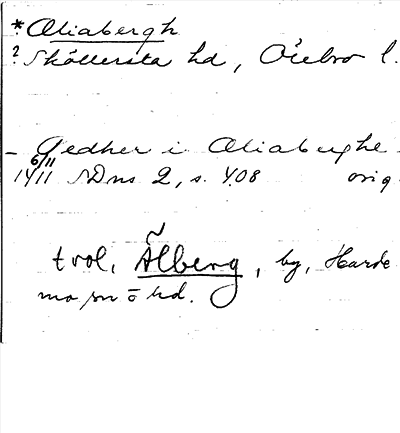 *Oliabergh
? Sköllersta hd, Örebro l.
– Gedher i Oliaberghe
14 6/11 11 SDns 2, s. 408 orig
trol. Älberg, by, Harde
mo sn o hd.